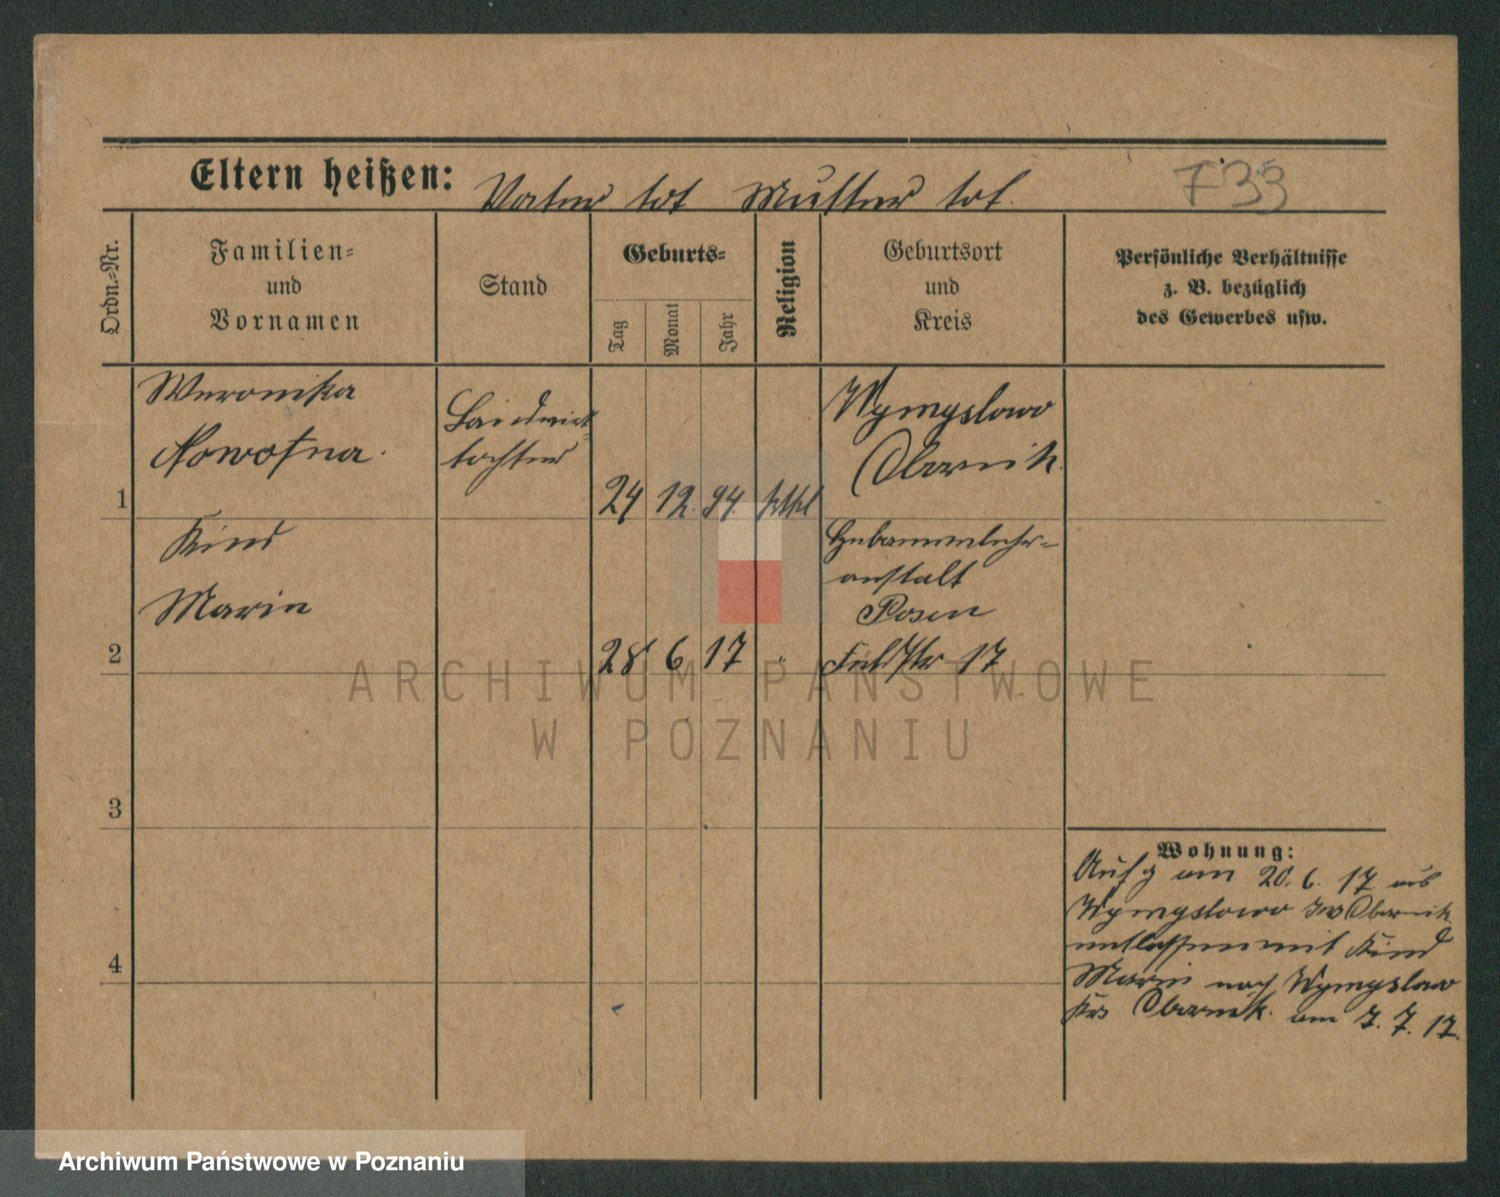 Eltern heißen: Vater tot Mutter tot.
733
Ordn.-Nr.
Familien-
und
Vornamen
Stand
Geburts-
Tag
Monat
Jahr
Religion
Geburtsort
und
Kreis
Persönliche Verhältnisse
z. B. bezüglich
des Gewerbes usw.
1
Weronika
Nowotna.
Landwirt-
tochter
24 12. 94. kthl
Wymyslowo
Obornik.
2
Kind
Marie
28 6 17
Hebammenlehr-
anstalt
Posen
Feldstr 17
3
4
Wohnung:
Aufg am 20. 6. 17 aus
Wymyslowo Krs Obornik
entlassen mit Kind
Marie nach Wymyslowo
Krs Obornik. am 7. 7. 17.
ARCHIWUM PAŃSTWOWE
W POZNANIU
Archiwum Państwowe w Poznaniu